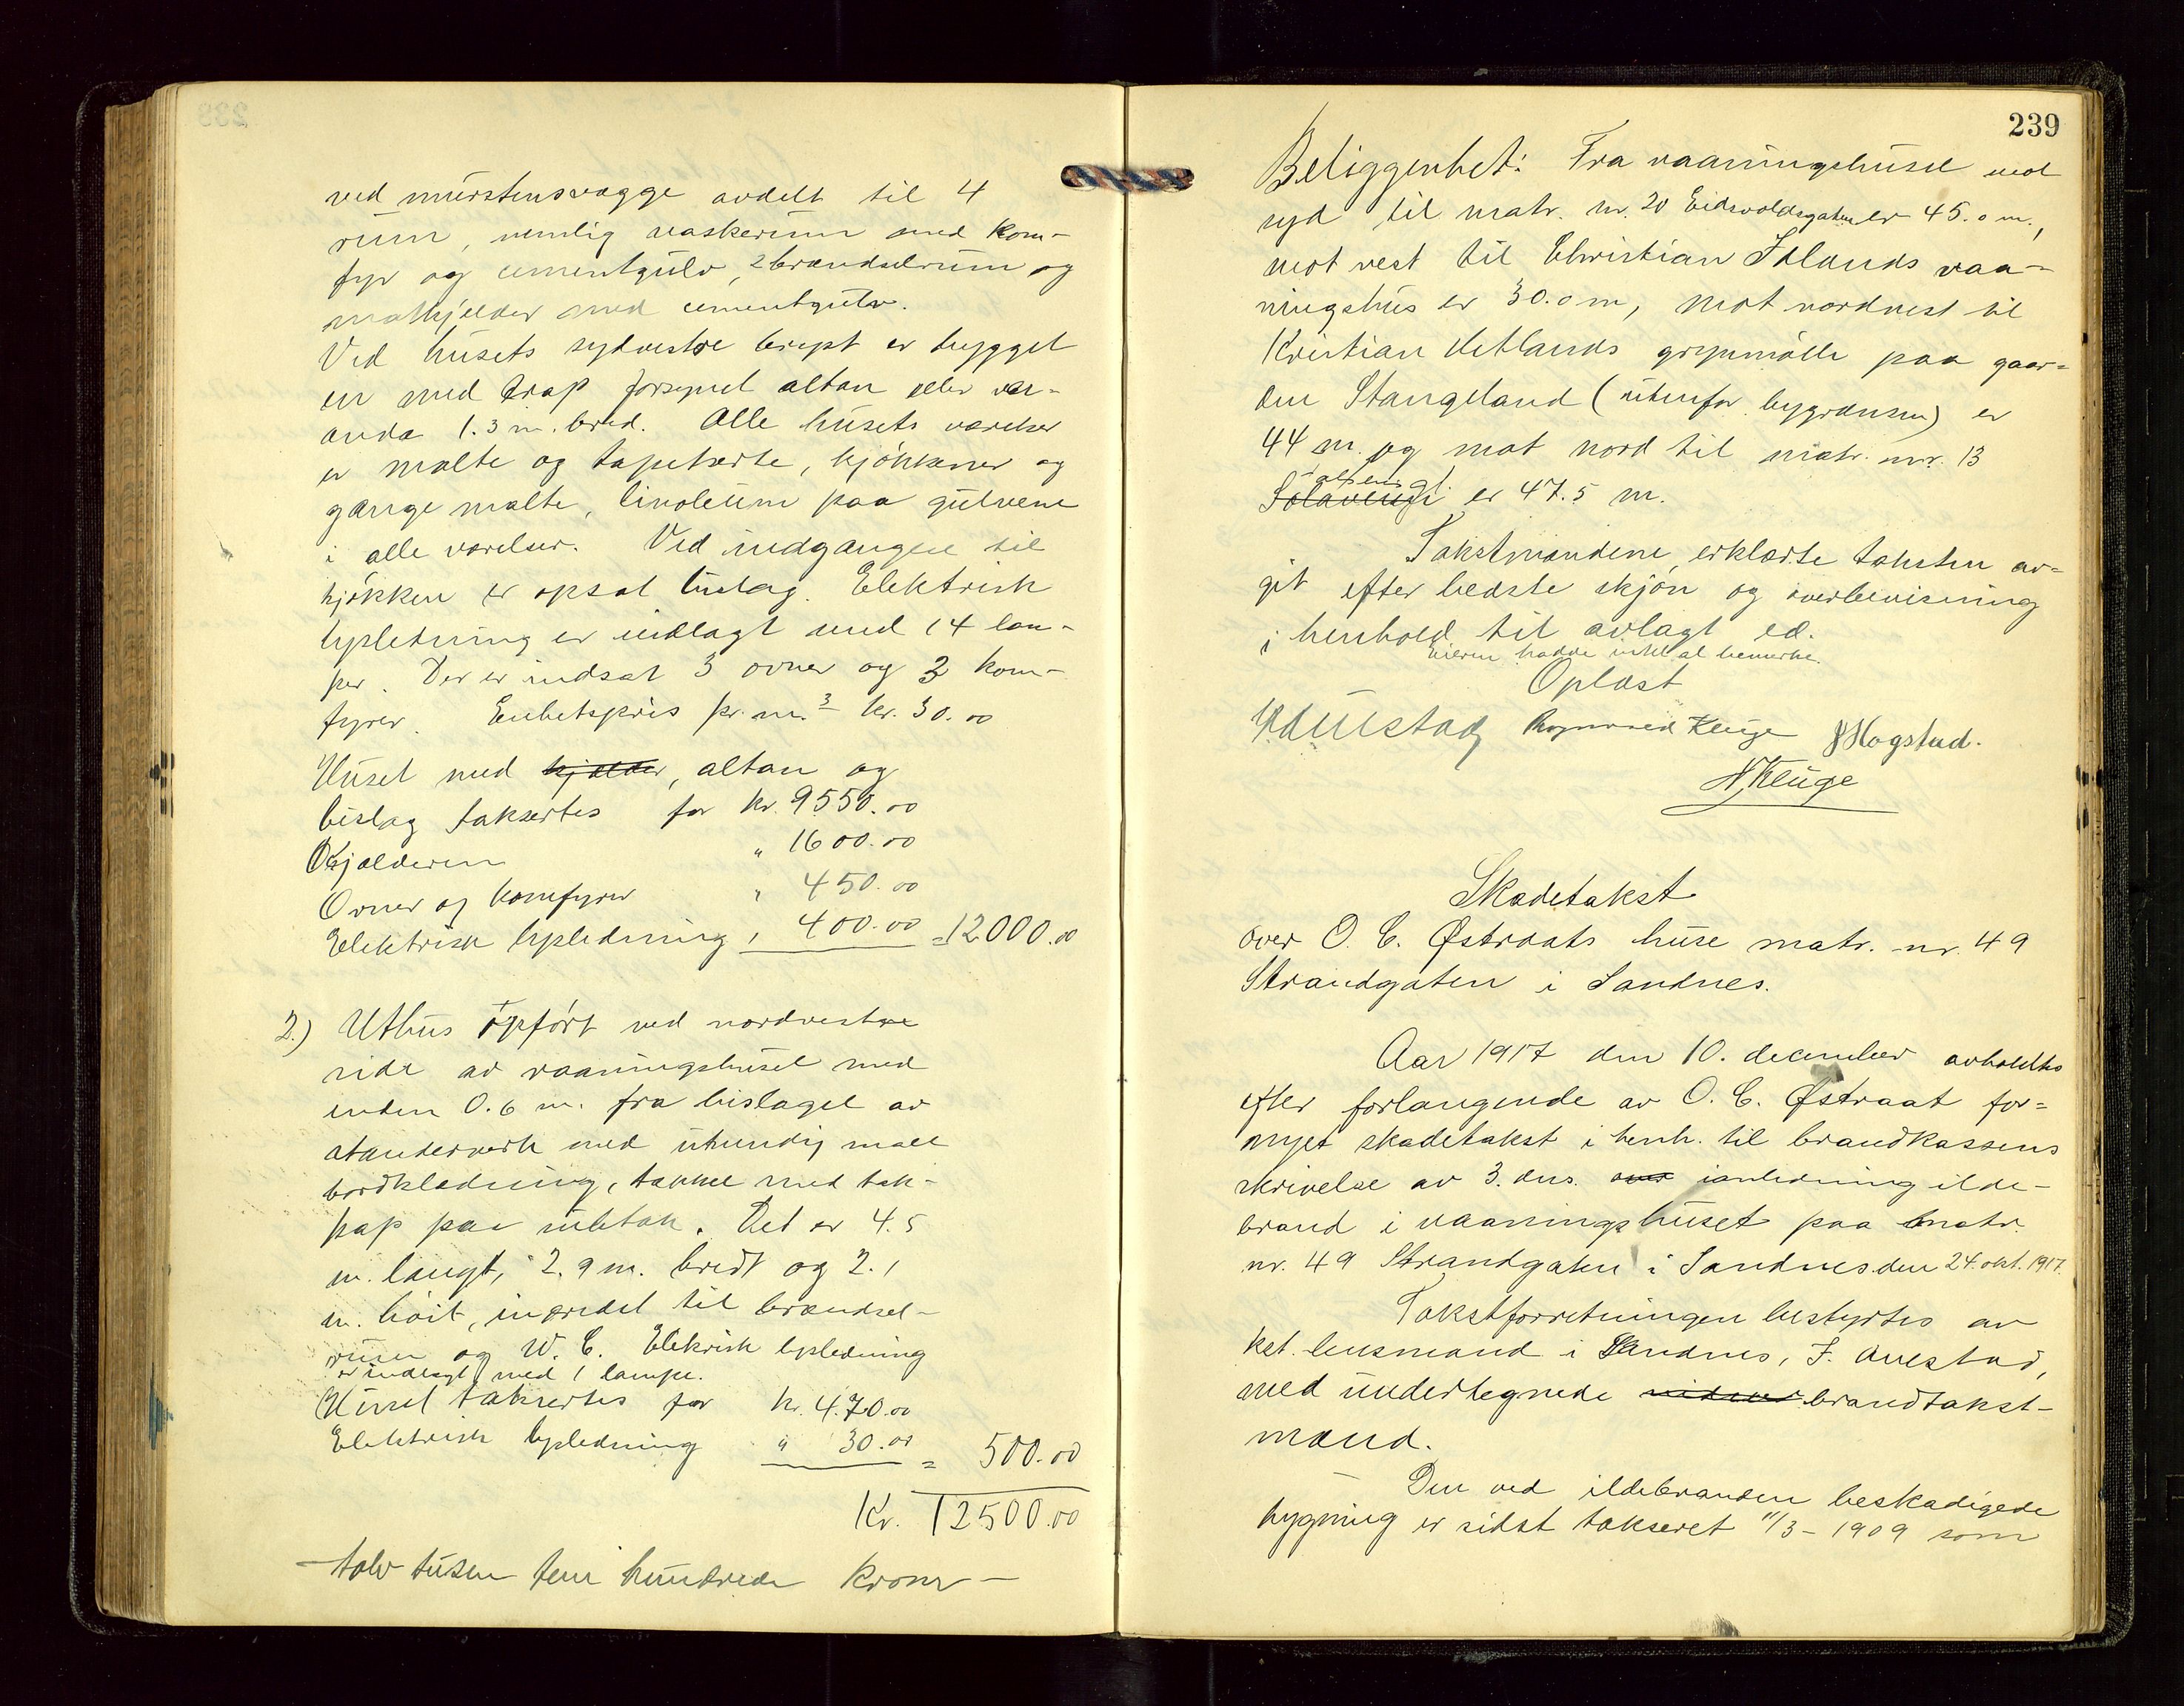 ved murstensvægge avdelt til 4
rum, nemlig vaskerum med kom-
fyr og cementgulv, 2 brændselrum og
matkjelder med cementgulv.
Ved husets sydvestre bryst er bygget
en med trap forsynet altan eller ver-
anda 1.3 m. bred. Alle husets værelser
er malte og tapetserte, kjøkkener og
gange malte, linoleum paa gulvene
i alle værelser. Ved indgangen til
kjøkken er opsat bislag. Elektrisk
lysledning er indlagt med 14 lam-
per. Der er indsat 3 ovner og 2 kom-
fyrer. Enhetspris pr. m.3 kr. 30.00
Huset med kjælder, altan og
bislag takseres for kr. 9550.00
Kjælderen " 1600.00
Ovner og komfyrer " 450.00
Elektrisk lysledning " 400.00 = 12000.00
2.) Uthus opført ved nordvestre
side av vaaningshuset med
enden 0.6 m. fra bislaget av
standerverk med utvendig malt
bordklædning, tækket med tak-
pap paa sutak. Det er 4.5
m. langt, 2.9 m. bredt og 2.1
m. høit, inredet til brændsel-
rum og W. C. Elekrisk lysledning
er indlagt med 1 lampe.
Huset taksertes for kr. 470.00
Elektrisk lysledning " 30.00 = 500.00
Kr. 12500.00
- tolv tusen fem hundrede kroner -
239
Beliggenhet: Fra vaaningshuset mot
syd til matr. nr. 20 Eidsvoldsgaten er 45.0 m.,
mot vest til Christian Islands vaa-
ningshus er 30.0 m, mot nordvest til
Kristian Vetlands grynmølle paa gaar-
den Stangeland (utenfor bygrænsen) er
44 m. og mot nord til matr. nr. 13
Solavengt er 47.5 m.
Takstmændene erklærte taksten av-
git efter bedste skjøn og overbevisning
i henhold til avlagt ed.
Eieren hadde intet at bemerke.
Oplæst
Auestad Rognvald Kluge J Hogstad.
N. Kluge
Skadetakst
over O. C. Østraats huse matr. nr. 49
Strandgaten i Sandnes.
Aar 1917 den 10. december avholdtes
efter forlangende av O. C. Østraat for-
nyet skadetakst i henh. til brandkassens
skrivelse av 3. dns. over i anledning ilde-
brand i vaaningshuset paa matr.
nr. 49 Strandgaten i Sandnes den 24. okt. 1917.
Takstforretningen bestyrtes av
kst. lensmand i Sandnes, J. Auestad,
med undertegnede vidner brandtakst-
mænd.
Den ved ildebranden beskadigede
bygning er sidst takseret 11/3 - 1909 som